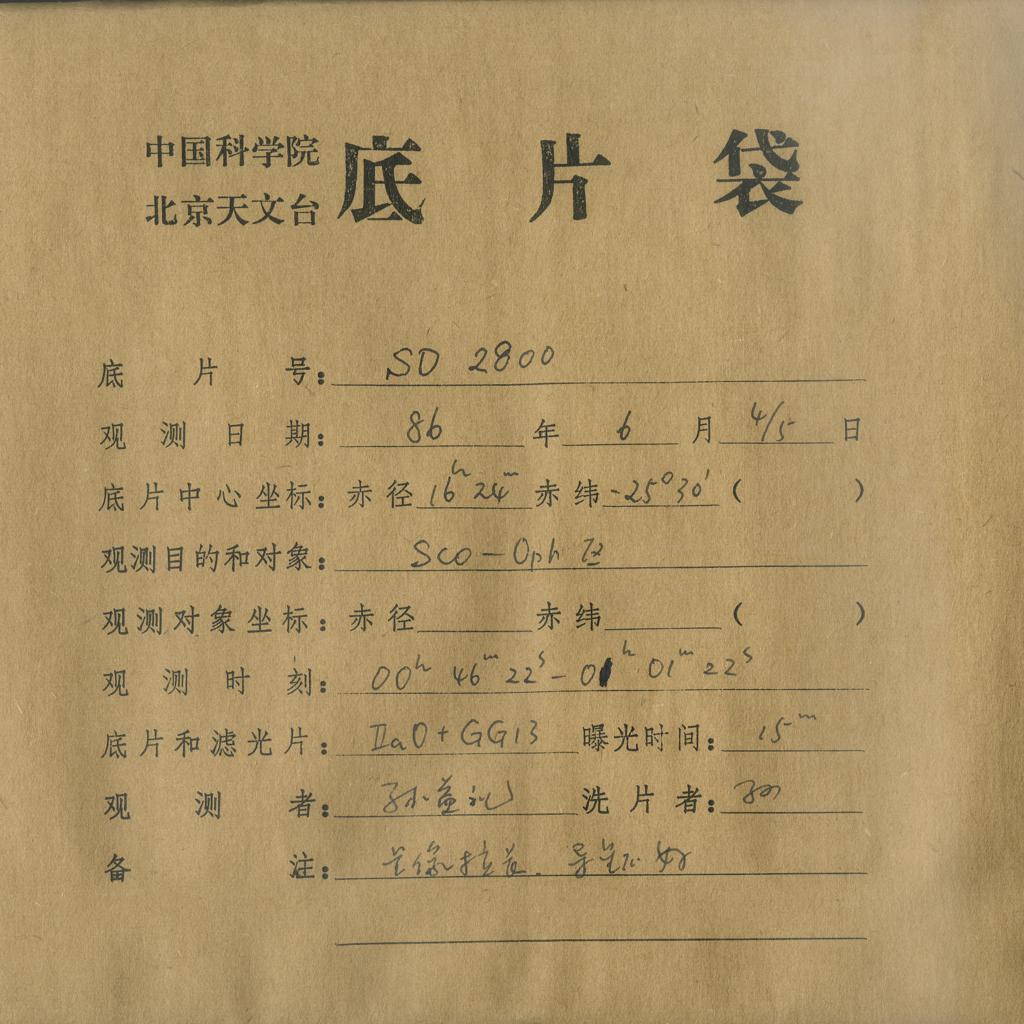 中国科学院
北京天文台
底片袋
底片号: SD 2800
观测日期: 86 年 6 月 4/5 日
底片中心坐标: 赤径 16ʰ 24ᵐ 赤纬 -25°30′ ( )
观测目的和对象: Sco-Oph 区
观测对象坐标: 赤径 赤纬 ( )
观测时刻: 00ʰ 46ᵐ 22ˢ - 01ʰ 01ᵐ 22ˢ
底片和滤光片: IIaO+GG13 曝光时间: 15ᵐ
观测者: 孙益礼 洗片者: 孙
备注: 星像拉长.